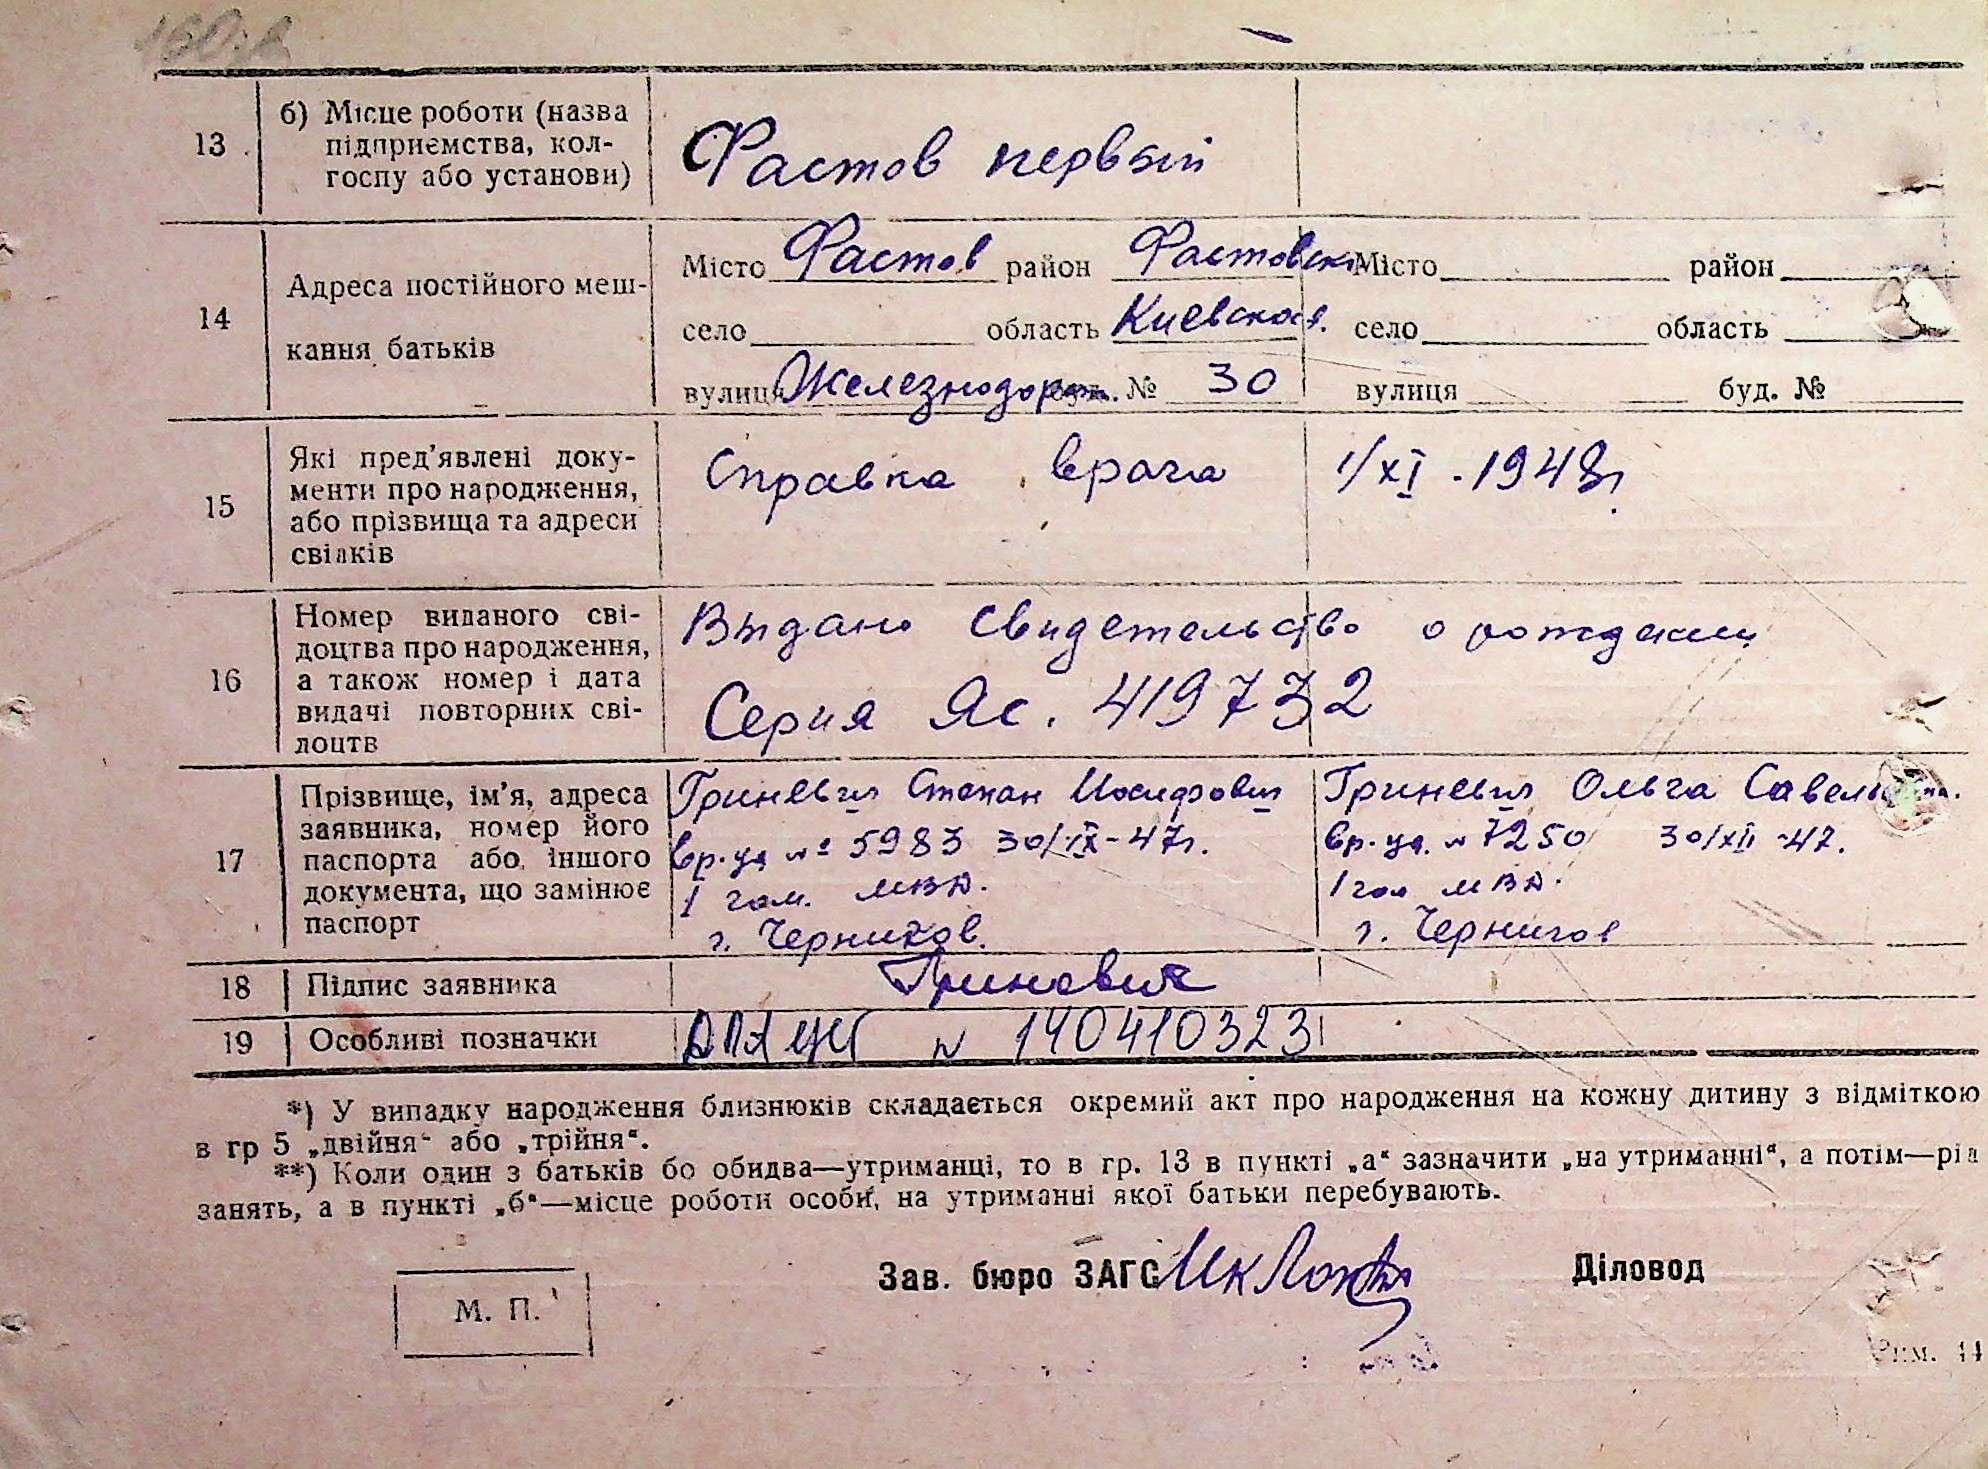 13
б) Місце роботи (назва
підприємства, кол-
госпу або установи)
Фастов первый
14
Адреса постійного меш-
кання батьків
Місто Фастов район Фастовск
село область Киевская.
вулиця Железнодор. буд. № 30
Місто район
село область
вулиця буд. №
15
Які пред’явлені доку-
менти про народження,
або прізвища та адреси
свідків
Справка врача 1/XI - 1948г.
16
Номер виданого сві-
доцтва про народження,
а також номер і дата
видачі повторних сві-
доцтв
Выдано Свидетельство о рождении
Серия Яс. 419732
17
Прізвище, ім’я, адреса
заявника, номер його
паспорта або іншого
документа, що замінює
паспорт
Гриневич Степан Иосифович
вр. уд № 5983 30/IX - 47г.
1 гом. МВД.
г. Чернигов.
Гриневич Ольга Савельевна.
вр. уд. № 7250 30/XII - 47.
1 гом МВД.
г. Чернигов
18
Підпис заявника
Гриневич
19
Особливі позначки
N 1404103231
*) У випадку народження близнюків складається окремий акт про народження на кожну дитину з відміткою
в гр 5 „двійня“ або „трійня“.
**) Коли один з батьків бо обидва—утриманці, то в гр. 13 в пункті „а“ зазначити „на утриманні“, а потім—рід
занять, а в пункті „б“—місце роботи особи, на утриманні якої батьки перебувають.
Зав. бюро ЗАГС
Діловод
М. П.